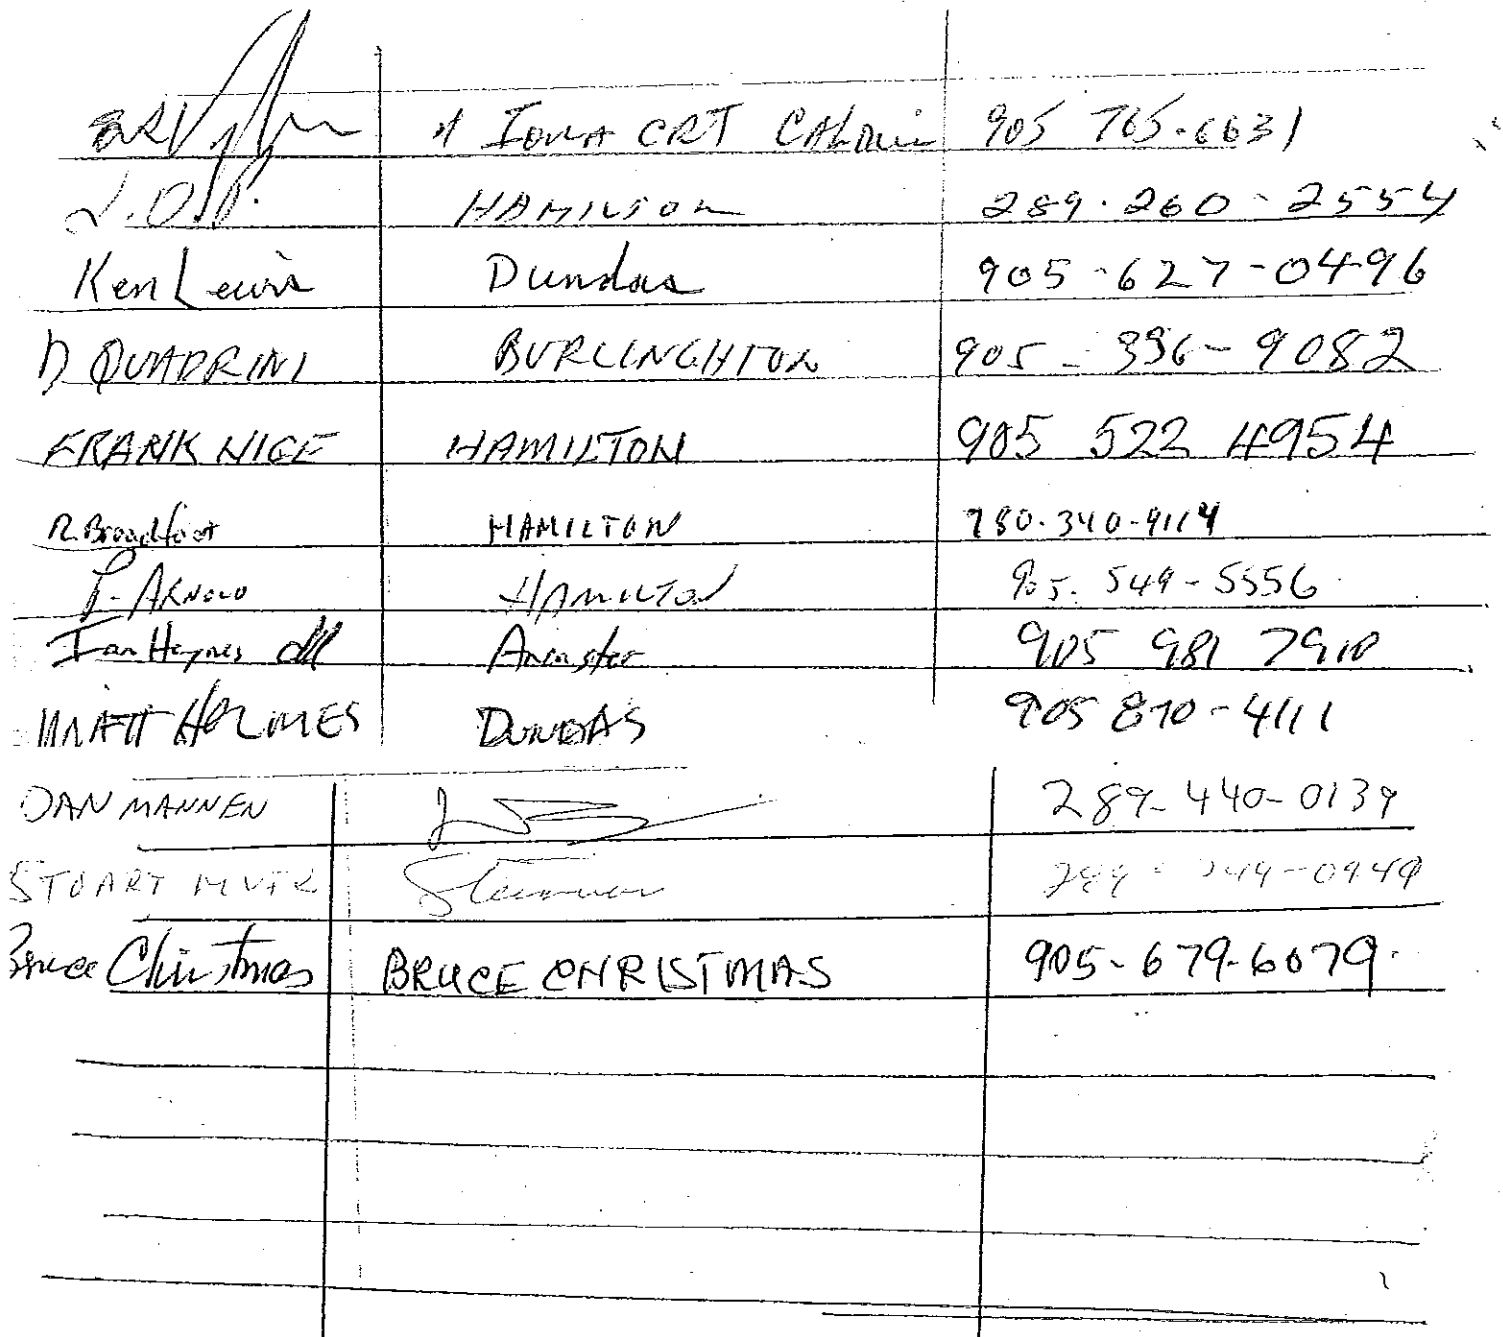 CRT 905 765-6631
HAMILTON 289-260-2554
Ken Lewis Dundas 905-627-0496
D QUADRINI BURLINGHTON 905-336-9082
FRANK NIGE HAMILTON 905 522 4954
R. Broadfoot HAMILTON 780-340-9114
P. ARNOLD HAMILTON 905-549-5556
Ian Haynes Ancaster 905 981 7910
MATT HOLMES DUNDAS 905 870-4111
DAN MANNEN 289-440-0139
STUART
Bruce Christmas BRUCE CHRISTMAS 905-679-6079